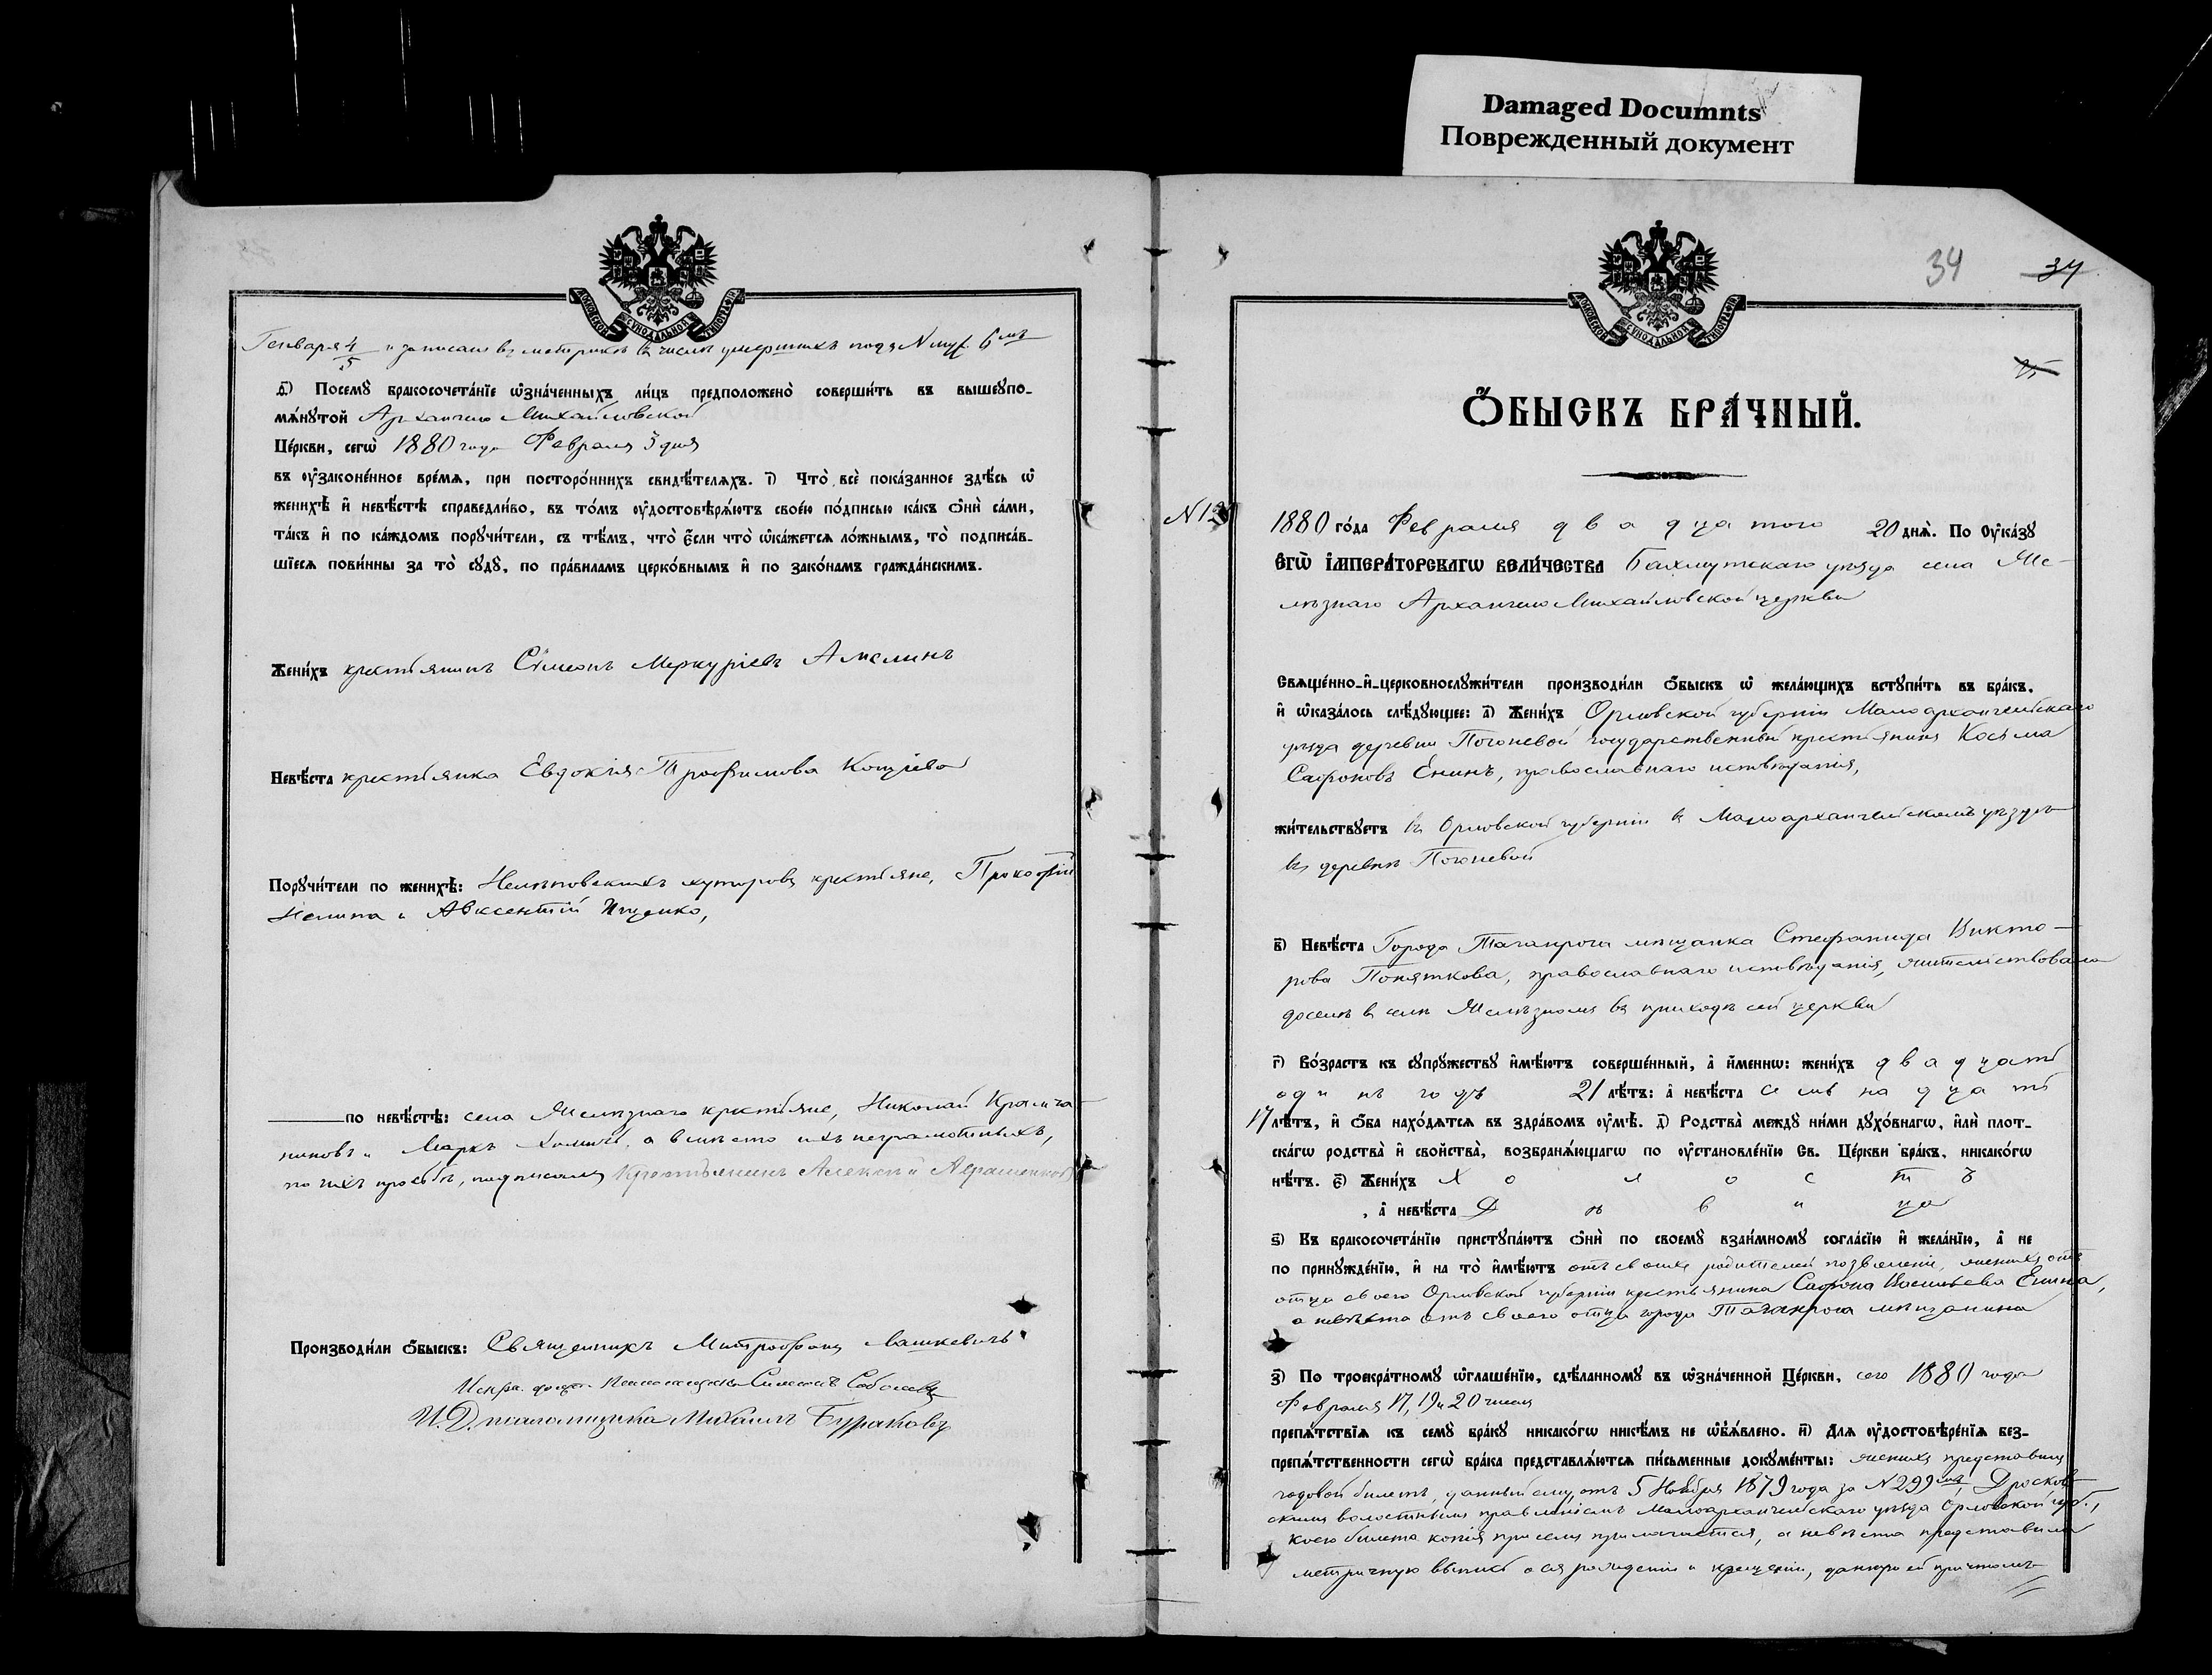 Damaged Documnts
Поврежденный документ
Генваря 4/5 и записано въ метрикѣ въ числѣ умершихъ подъ № муж. 6мъ
Посемꙋ бракосочета́нїе ѡ҆зна́ченныхъ ли́цъ предположено̀ соверши́ть въ вышеꙋпо-
мѧ́нꙋтой Архангело Михайловской
Це́ркви, сегѡ̀ 1880 года Февраля 3 дня
въ ᲂу҆законе́нное вре́мѧ, при посторо́ннихъ свидѣ́телѧхъ. і҃) Что̀ всѐ пока́занное здѣ́сь ѡ҆
женихѣ̀ и҆ невѣ́стѣ справедли́во, въ то́мъ ᲂу҆достовѣрѧ́ютъ свое́ю по́дписью ка́къ ѻ҆нѝ са́ми,
та́къ и҆ по ка́ждомъ порꙋчи́тели, съ тѣ́мъ, что̀ є҆́сли что̀ ѡ҆ка́жетсѧ ло́жнымъ, то̀ подписа́в-
шїесѧ пови́нны за то̀ сꙋдꙋ̀, по пра́виламъ церко́внымъ и҆ по зако́намъ гражда́нскимъ.
Жени́хъ крестьянинъ Сѵмеонъ Меркуріевъ Амелинъ
Невѣ́ста крестьянка Евдокія Трофимова
Порꙋчи́тели по женихѣ̀: хуторовъ крестьяне, Прокофій
и Авксентій Ищенко,
по невѣ́стѣ: села Желѣзнаго крестьяне, Николай
и Маркъ, а вмѣсто ихъ неграмотныхъ,
по ихъ просьбѣ, подписался Крестьянинъ Алексѣй
Производи́ли ѻ҆́быскъ: Священникъ Митрофанъ Лашкевичъ
Псаломщикъ Симеонъ
И. Д. псаломщика Михаилъ Бураковъ
МОСКОВСКОЙ СѴНОДАЛЬНОЙ ТИПОГРАФІИ
34 34
ѺБЫСКЪ БРАЧНЫЙ.
N 12
1880 го́да Февраля двадцатого 20 днѧ̀. По Оу҆ка́зꙋ
Є҆гѡ̀ І҆мпера́торскагѡ вели́чества Бахмутскаго уѣзда села Же-
лѣзнаго Архангело Михайловской церкви
Свѧще́нно-и҆-церковнослꙋжи́тели производи́ли ѻ҆́быскъ ѡ҆ жела́ющихъ встꙋпи́ть въ бра́къ,
и҆ ѡ҆каза́лось слѣ́дꙋющее: а҃) Жени́хъ Орловской губерніи Малоархангельскаго
уѣзда деревни Погоневой государственный крестьянинъ Косьма
Сафоновъ Енинъ, православнаго исповѣданія,
жи́тельствꙋетъ въ Орловской губерніи въ Малоархангельскомъ уѣздѣ
въ деревнѣ Погоневой
в҃) Невѣ́ста Города Таганрога мѣщанка Стефанида Викто-
рова Поняткова, православнаго исповѣданія, жительствовала
доселѣ въ селѣ Желѣзномъ въ приходѣ сей церкви
г҃) Во́зрастъ къ сꙋпрꙋ́жествꙋ и҆мѣ́ютъ соверше́нный, а҆ и҆́меннѡ: жени́хъ двадцать
одинъ годъ 21 лѣ́тъ: а҆ невѣ́ста семнадцать
17 лѣ́тъ, и҆ ѻ҆́ба нахо́дѧтсѧ въ здра́вомъ ᲂу҆мѣ̀. д҃) Родства̀ междꙋ ни́ми дꙋхо́внагѡ, и҆лѝ плот-
ска́гѡ родства̀ и҆ сво́йства, возбранѧ́ющагѡ по ᲂу҆становле́нїю Св. Це́ркви бра́къ, никако́гѡ
нѣ́тъ. є҃) Жени́хъ Холостъ
, а҆ невѣ́ста Дѣвица
ѕ҃) Къ бракосочета́нїю пристꙋпа́ютъ ѻ҆нѝ по своемꙋ̀ взаи́мномꙋ согла́сїю и҆ жела́нїю, а҆ не
по принꙋжде́нїю, и҆ на то̀ и҆мѣ́ютъ отъ своихъ родителей позволеніе, женихъ отъ
отца своего Орловской губерніи крестьянина Сафона Васильева Енина,
а невѣста отъ своего отца города Таганрога мѣщанина
з҃) По троекра́тномꙋ ѡ҆глаше́нїю, сдѣ́ланномꙋ въ ѡ҆зна́ченной Це́ркви, сего 1880 года
Февраля 17, 19 и 20 чиселъ
препѧ́тствїѧ къ семꙋ̀ бра́кꙋ никако́гѡ никѣ́мъ не ѡ҆б̾ѧ́влено. и҃) Длѧ ᲂу҆достовѣре́нїѧ без-
препѧ́тственности сегѡ̀ бра́ка представлѧ́ютсѧ пи́сьменные докꙋме́нты: женихъ представилъ
годовой билетъ, данный ему отъ 5 Ноября 1879 года за N 299мъ Дросков-
скимъ волостнымъ правленіемъ Малоархангельскаго уѣзда Орловской губ.,
коего билета копія при семъ прилагается, а невѣста представила
метричную выпись о ея рожденіи и крещеніи, данную ей причтомъ